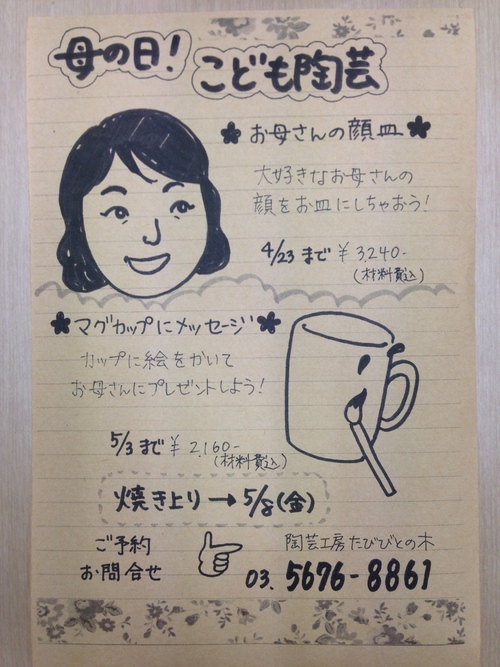 母の日!
こども陶芸
お母さんの顔皿
大好きなお母さんの
顔をお皿にしちゃおう!
4/23まで ¥3,240-
(材料費込)
マグカップにメッセージ
カップに絵をかいて
お母さんにプレゼントしよう!
5/3まで ¥2,160-
(材料費込)
焼き上り→5/8(金)
ご予約
お問合せ
陶芸工房たびびとの木
03.5676-8861